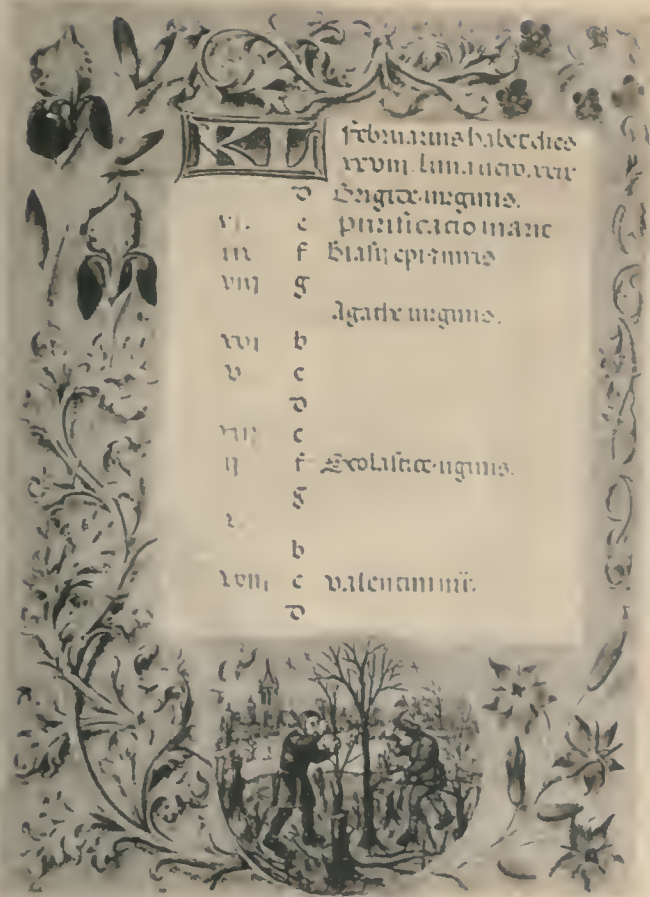 KL februarius habet dies
xxviii. luna vero. xxix
d Brigite virginis.
vi. e purificatio marie
iii f Blasii epi
viii g
Agathe virginis.
xvi b
v c
d
e
ii f Scolastice virginis.
g
x.
b
xviii c valentini
d